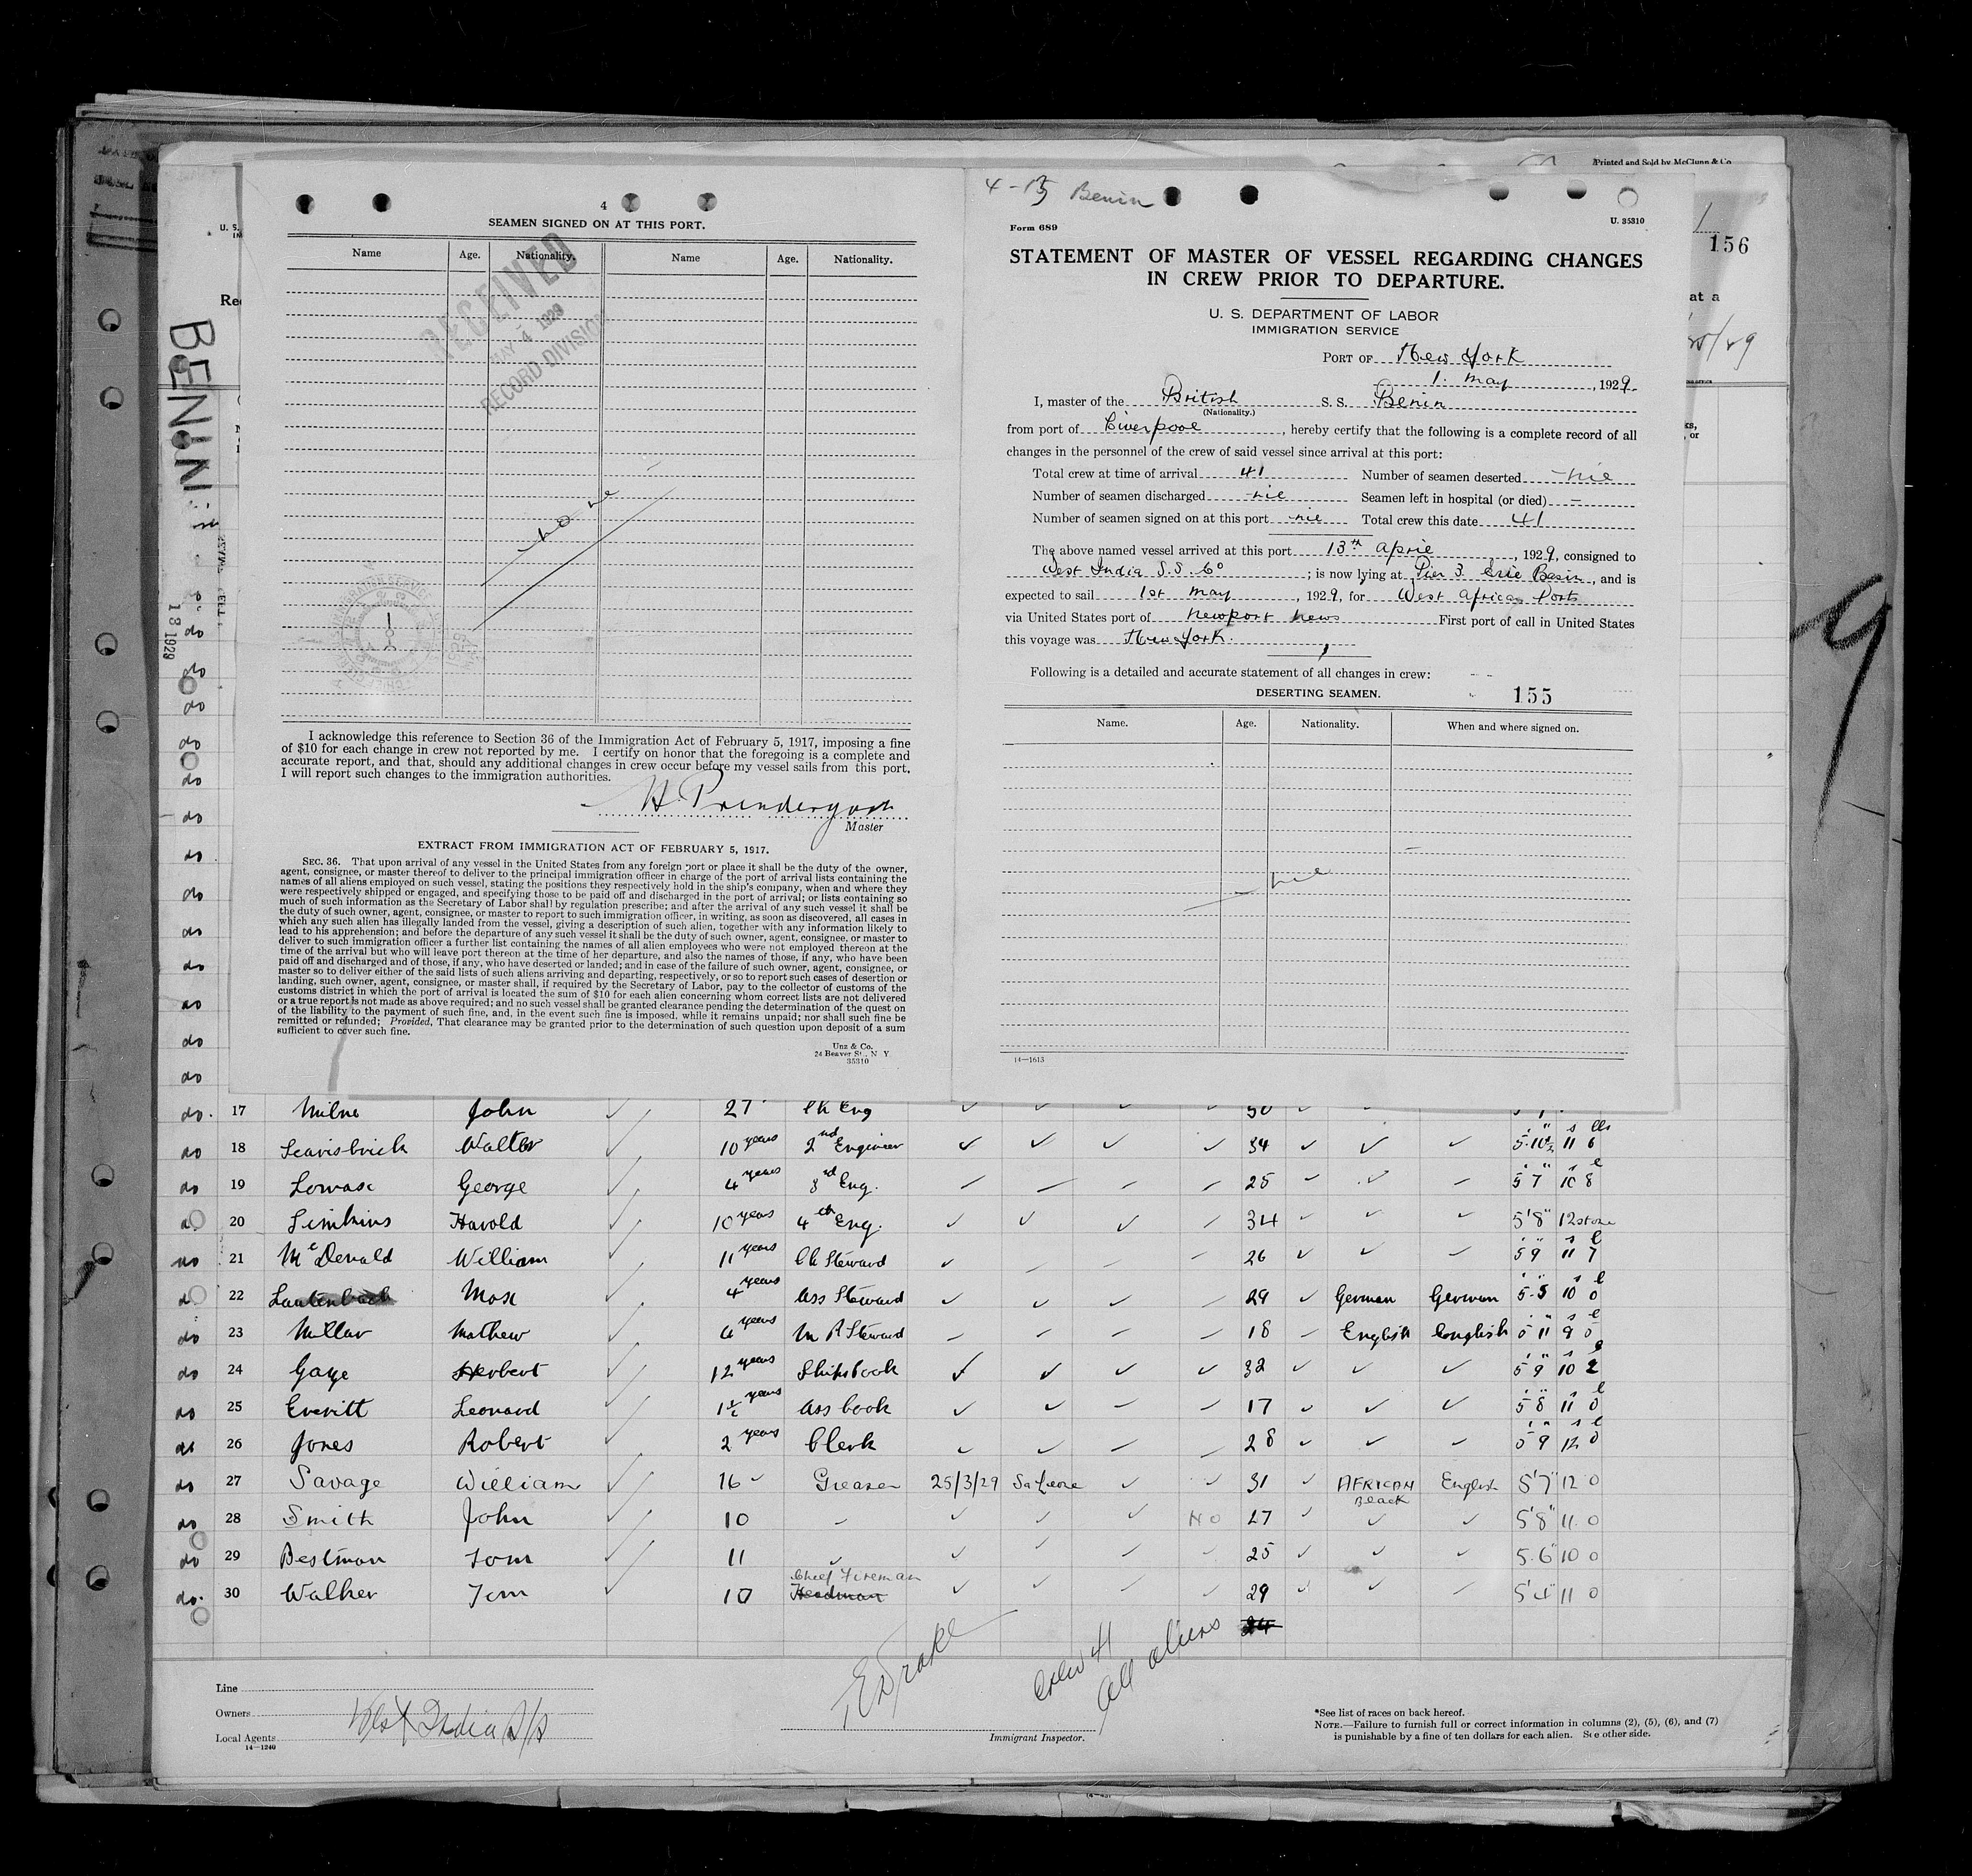 Printed and Sold by McClunn & Co
156
at a
BENIN
13 1929
4
SEAMEN SIGNED ON AT THIS PORT.
Name Age. Nationality. Name Age. Nationality.
RECEIVED
MAY 4 1929
RECORD DIVISION
none
I acknowledge this reference to Section 36 of the Immigration Act of February 5, 1917, imposing a fine
of $10 for each change in crew not reported by me. I certify on honor that the foregoing is a complete and
accurate report, and that, should any additional changes in crew occur before my vessel sails from this port,
I will report such changes to the immigration authorities.
H. Prendergast
Master
EXTRACT FROM IMMIGRATION ACT OF FEBRUARY 5, 1917.
SEC. 36. That upon arrival of any vessel in the United States from any foreign port or place it shall be the duty of the owner,
agent, consignee, or master thereof to deliver to the principal immigration officer in charge of the port of arrival lists containing the
names of all aliens employed on such vessel, stating the positions they respectively hold in the ship's company, when and where they
were respectively shipped or engaged, and specifying those to be paid off and discharged in the port of arrival; or lists containing so
much of such information as the Secretary of Labor shall by regulation prescribe; and after the arrival of any such vessel it shall be
the duty of such owner, agent, consignee, or master to report to such immigration officer, in writing, as soon as discovered, all cases in
which any such alien has illegally landed from the vessel, giving a description of such alien, together with any information likely to
lead to his apprehension; and before the departure of any such vessel it shall be the duty of such owner, agent, consignee, or master to
deliver to such immigration officer a further list containing the names of all alien employees who were not employed thereon at the
time of the arrival but who will leave port thereon at the time of her departure, and also the names of those, if any, who have been
paid off and discharged and of those, if any, who have deserted or landed; and in case of the failure of such owner, agent, consignee, or
master so to deliver either of the said lists of such aliens arriving and departing, respectively, or so to report such cases of desertion or
landing, such owner, agent, consignee, or master shall, if required by the Secretary of Labor, pay to the collector of customs of the
customs district in which the port of arrival is located the sum of $10 for each alien concerning whom correct lists are not delivered
or a true report is not made as above required; and no such vessel shall be granted clearance pending the determination of the quest on
of the liability to the payment of such fine, and, in the event such fine is imposed, while it remains unpaid; nor shall such fine be
remitted or refunded; Provided, That clearance may be granted prior to the determination of such question upon deposit of a sum
sufficient to cover such fine.
Unz & Co.
24 Beaver St., N Y
35310
Benin
Form 689
U. 35310
STATEMENT OF MASTER OF VESSEL REGARDING CHANGES
IN CREW PRIOR TO DEPARTURE.
U. S. DEPARTMENT OF LABOR
IMMIGRATION SERVICE
PORT OF New York
1. may, 1929.
I, master of the British S. S. Benin
(Nationality.)
from port of Liverpool, hereby certify that the following is a complete record of all
changes in the personnel of the crew of said vessel since arrival at this port:
Total crew at time of arrival 41 Number of seamen deserted nil
Number of seamen discharged nil Seamen left in hospital (or died) –
Number of seamen signed on at this port nil Total crew this date 41
The above named vessel arrived at this port 13th April, 1929, consigned to
West India S.S. Co; is now lying at Pier 3 Erie Basin, and is
expected to sail 1st may, 1929, for West African Ports
via United States port of Newport News First port of call in United States
this voyage was New York.
Following is a detailed and accurate statement of all changes in crew:
DESERTING SEAMEN. 155
Name. Age. Nationality. When and where signed on.
nil
14—1613
do. 17 Milne John 27 Ch Eng
do 18 Scarisbrick Walter 10 years 2nd Engineer 34 5·10½ 11 6
do 19 Lomax George 4 years 3rd Eng. 25 5 7 10 8
20 Simkins Harold 10 years 4th Eng. 34 5'8" 12 stone
do 21 McDonald William 11 years Ch Steward 26 5 9 11 7
22 Lautenbach Max 4 years Ass Steward 29 German German 5·5 10 0
do 23 Millar Mathew 4 years M R Steward 18 English English 5 11 9 0
do 24 Gaye Herbert 12 years Ships Cook 32 5 9 10 2
do 25 Everitt Leonard 1½ years Ass Cook 17 5 8 11 0
do 26 Jones Robert 2 years Clerk 28 5 9 12 0
do 27 Savage William 16 Greaser 25/3/29 Sa Leone 31 AFRICAN Black English 5'7" 12 0
do 28 Smith John 10 NO 27 5'8" 11 0
do 29 Bestman Tom 11 25 5.6" 10 0
do. 30 Walker Tom 10 Chief Fireman Headman 29 5'4" 11 0
24
Line
Owners
Local Agents West India S/S
14—1240
Crew 41
All aliens
Immigrant Inspector.
*See list of races on back hereof.
NOTE.—Failure to furnish full or correct information in columns (2), (5), (6), and (7)
is punishable by a fine of ten dollars for each alien. See other side.